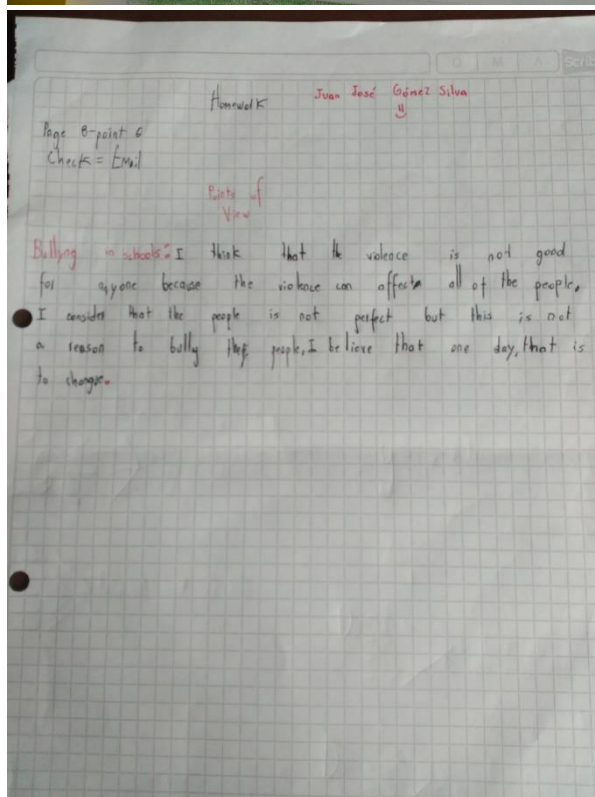 O M A Scrib
Homework Juan José Gómez Silva
Page 8-point 6
Check = Email
Points of
View
Bullyng in schools: I think that the violence is not good
for anyone because the violence can affects all of the people,
I consider that the people is not perfect but this is not
a reason to bully the people, I believe that one day, that is
to change.